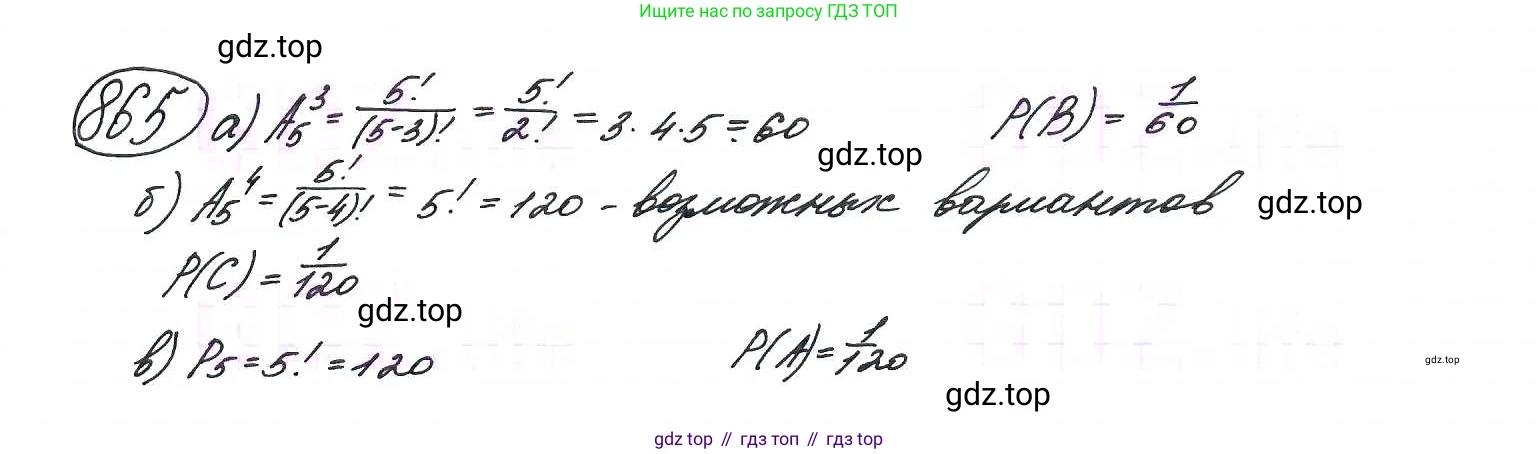 Ищите нас по запросу ГДЗ ТОП
gdz.top
865 а) A₅³ = 5!/(5-3)! = 5!/2! = 3·4·5 = 60 P(B) = 1/60
gdz.top
б) A₅⁴ = 5!/(5-4)! = 5! = 120 - возможных вариантов gdz.top
P(C) = 1/120
gdz.top
в) P₅ = 5! = 120 P(A) = 1/120
gdz.top
gdz.top
gdz top // гдз топ // gdz top